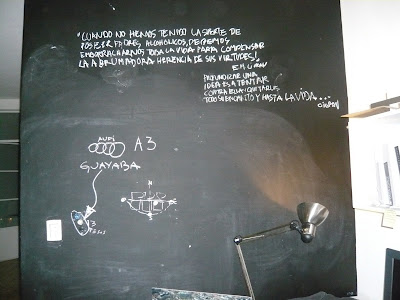 "CUANDO NO HEMOS TENIDO LA SUERTE DE
POSEER PADRES ALCOHÓLICOS, DEBEMOS
EMBORRACHARNOS TODA LA VIDA PARA COMPENSAR
LA ABRUMADORA HERENCIA DE SUS VIRTUDES"
E.M. CIORAN
PROFUNDIZAR UNA
IDEA ES ATENTAR
CONTRA ELLA: QUITARLE
TODO SU ENCANTO Y HASTA LA VIDA...
CIORAN
AUDI
A3
GUAYABA
3
PESOS